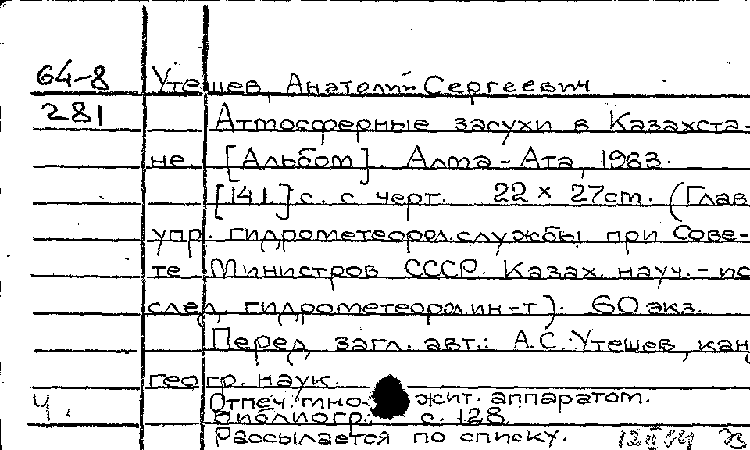 64-8 Утешев, Анатолий Сергеевич
281 Атмосферные засухи в Казахста-
не. [Альбом]. Алма-Ата, 1983.
[141] с. с черт. 22 × 27 cm. (Глав.
упр. гидрометеорол. службы при Сове-
те Министров СССР. Казах. науч.-ис
след. гидрометеорол. ин-т). 60 экз.
Перед загл. авт.: А.С. Утешев, кан
геогр. наук.
Отпеч. мно жит. аппаратом.
Ч. Библиогр.: с. 128
Рассылается по списку.